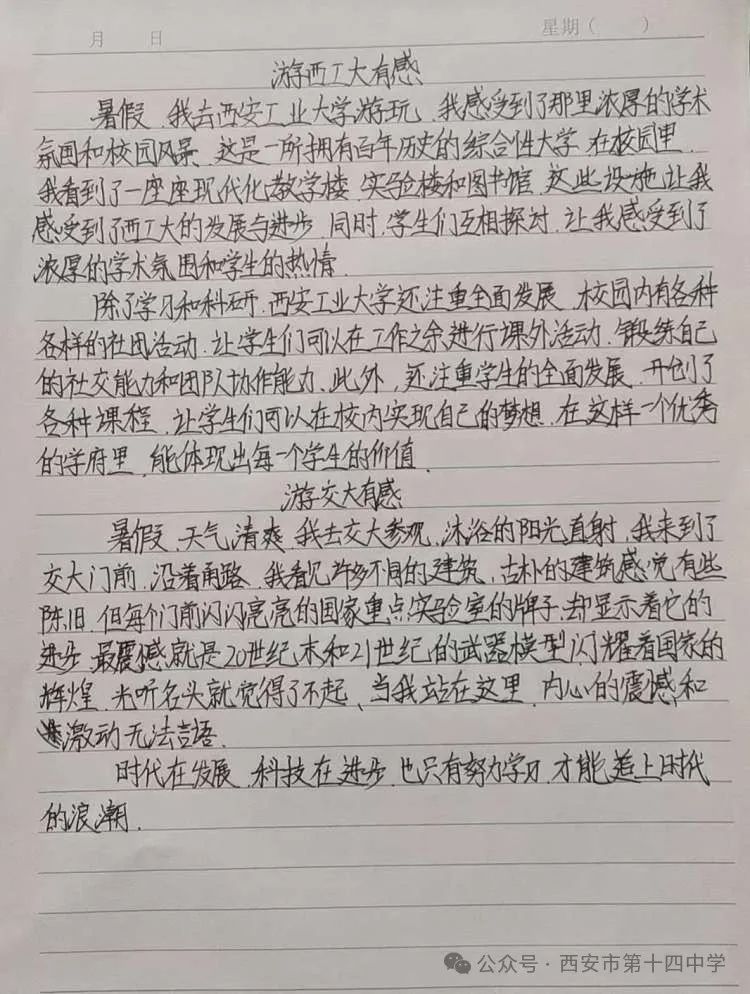 月 日 星期( )
游西工大有感
暑假,我去西安工业大学游玩,我感受到了那里浓厚的学术
氛围和校园风景,这是一所拥有百年历史的综合性大学,在校园里,
我看到了一座座现代化教学楼,实验楼和图书馆,这些设施,让我
感受到了西工大的发展与进步,同时,学生们互相探讨,让我感受到了
浓厚的学术氛围和学生的热情.
除了学习和科研,西安工业大学还注重全面发展,校园内有各种
各样的社团活动.让学生们可以在工作之余,进行课外活动.锻练自己
的社交能力和团队协作能力.此外,还注重学生的全面发展,开创了
各种课程,让学生们可以在校内实现自己的梦想,在这样一个优秀
的学府里,能体现出每一个学生的价值.
游交大有感
暑假,天气清爽,我去交大参观,沐浴的阳光直射,我来到了
交大门前,沿着甬路,我看见许多不同的建筑,古朴的建筑感觉有些
陈旧.但每个门前闪闪亮亮的国家重点实验室的牌子,却显示着它的
进步,最震撼就是20世纪末和21世纪的武器模型闪耀着国家的
辉煌,光听名头就觉得了不起,当我站在这里,内心的震撼和
激动无法言语.
时代在发展,科技在进步,也只有努力学习,才能追上时代
的浪潮.
公众号·西安市第十四中学